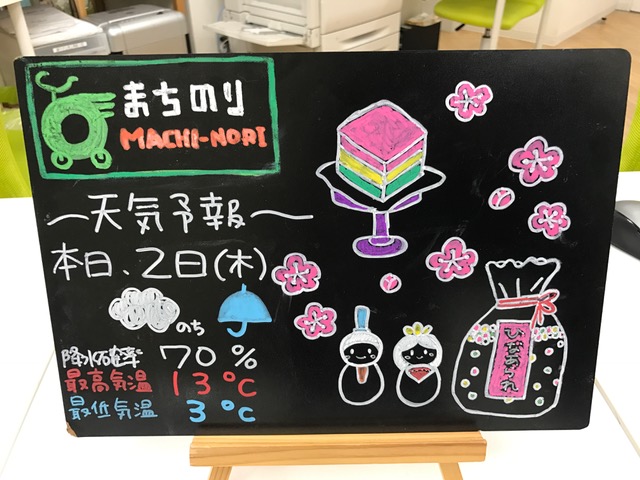 まちのり
MACHI-NORI
～天気予報～
本日、2日(木)
のち
降水確率 70%
最高気温 13℃
最低気温 3℃
ひなあられ